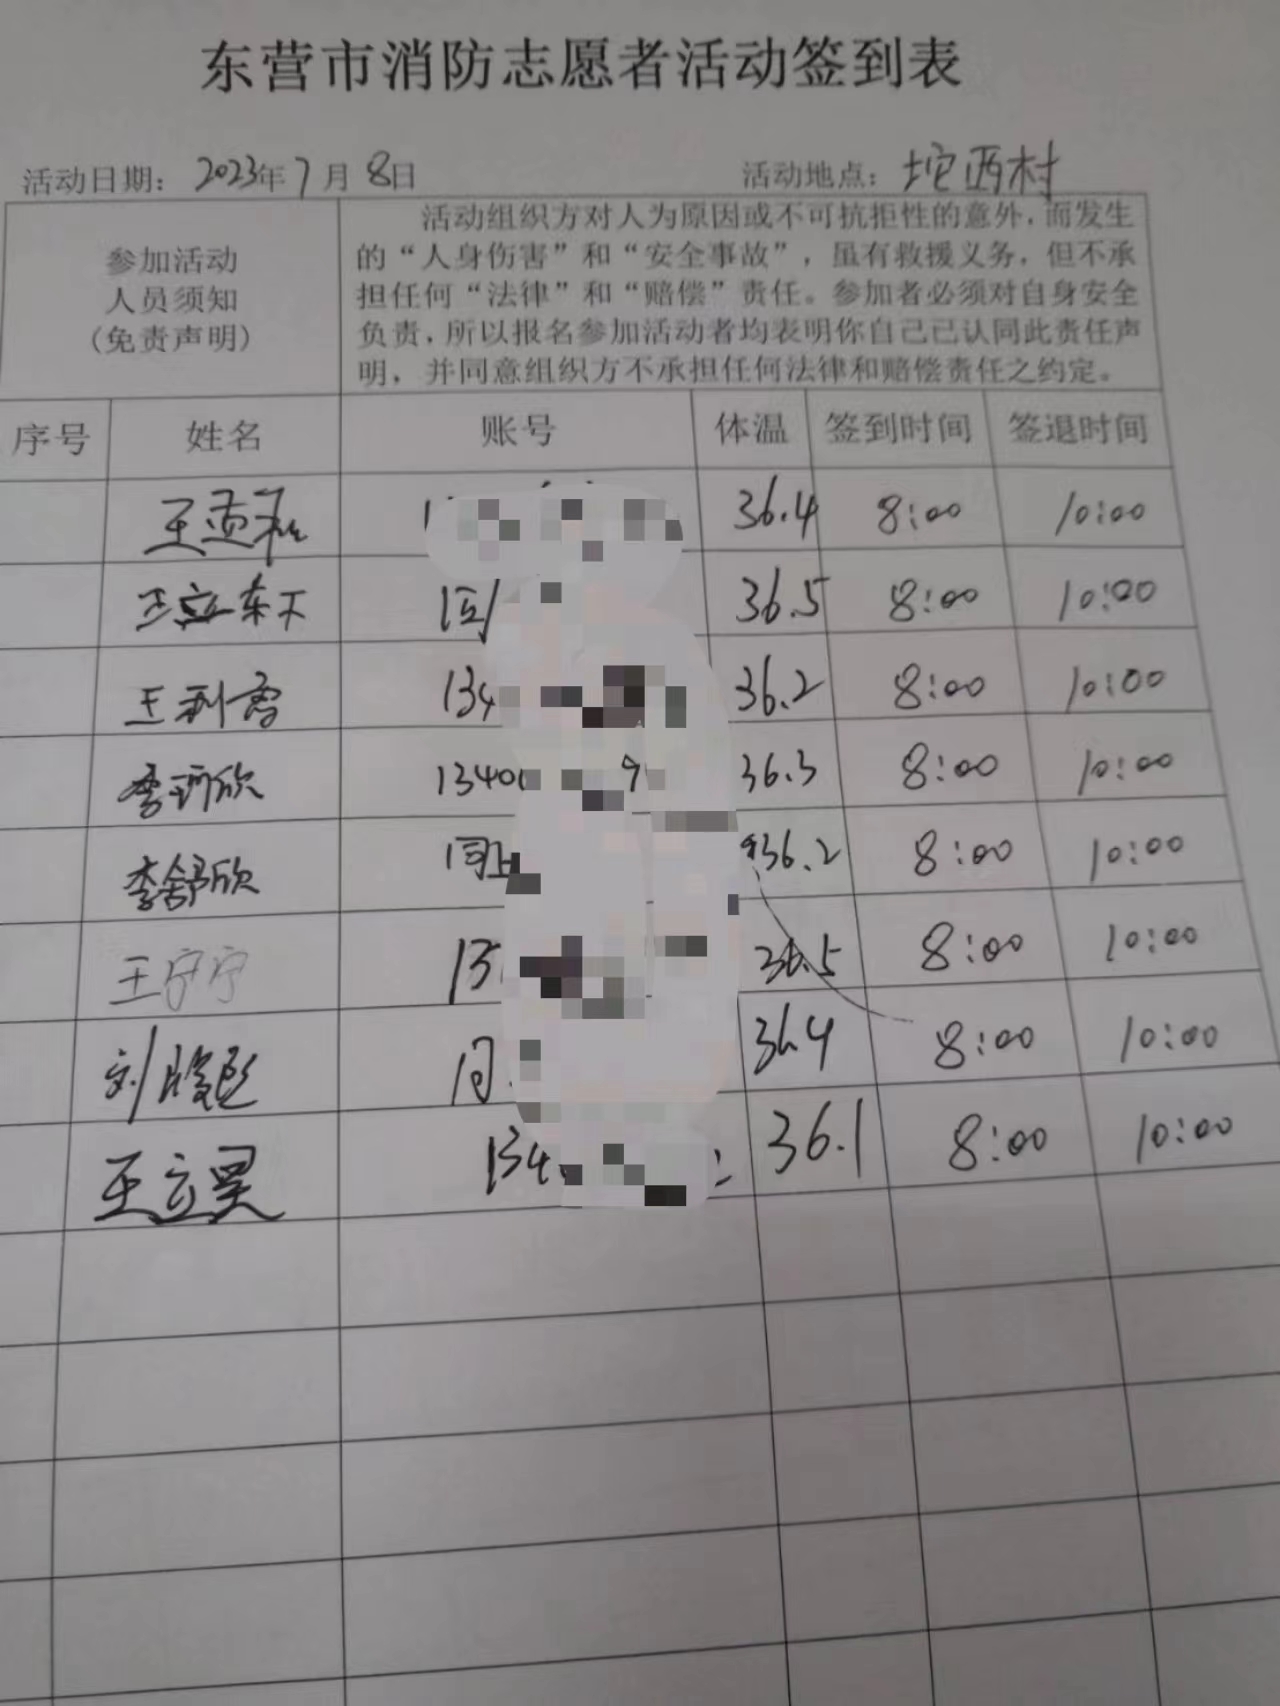 东营市消防志愿者活动签到表
活动日期：2023年7月8日 活动地点：坨西村
参加活动
人员须知
(免责声明)
活动组织方对人为原因或不可抗拒性的意外，而发生
的“人身伤害”和“安全事故”，虽有救援义务，但不承
担任何“法律”和“赔偿”责任。参加者必须对自身安全
负责，所以报名参加活动者均表明你自己已认同此责任声
明，并同意组织方不承担任何法律和赔偿责任之约定。
序号 姓名 账号 体温 签到时间 签退时间
王孟 36.4 8:00 10:00
王 36.5 8:00 10:00
王利 134 36.2 8:00 10:00
李珂欣 1340 9 36.3 8:00 10:00
李舒欣 同上 36.2 8:00 10:00
王宁宁 135 36.5 8:00 10:00
刘 同 36.4 8:00 10:00
王立昊 134 36.1 8:00 10:00